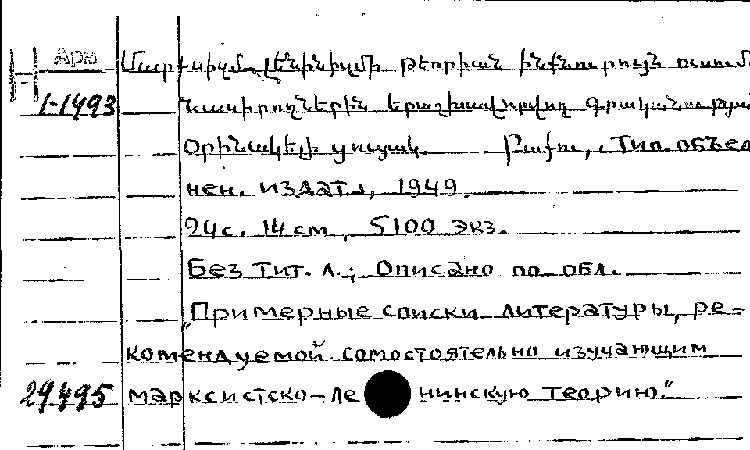 Арм
Մարքսիզմ-լենինիզմի թեորիան ինքնուրույն ուսում
1-1493 նասիրողներին երաշխավորվող գրականության
օրինակելի ցուցակ. Բաքու, Тип. объеди
нен. издат., 1949.
24с. 14 см, 5100 экз.
Без тит. л.; Описано по обл.
"Примерные списки литературы, ре=
комендуемой самостоятельно изучающим
29495 марксистско-ленинскую теорию."